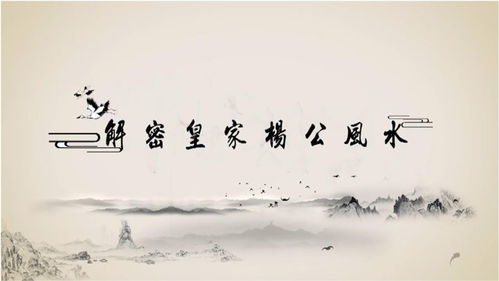 解密皇家楊公風水